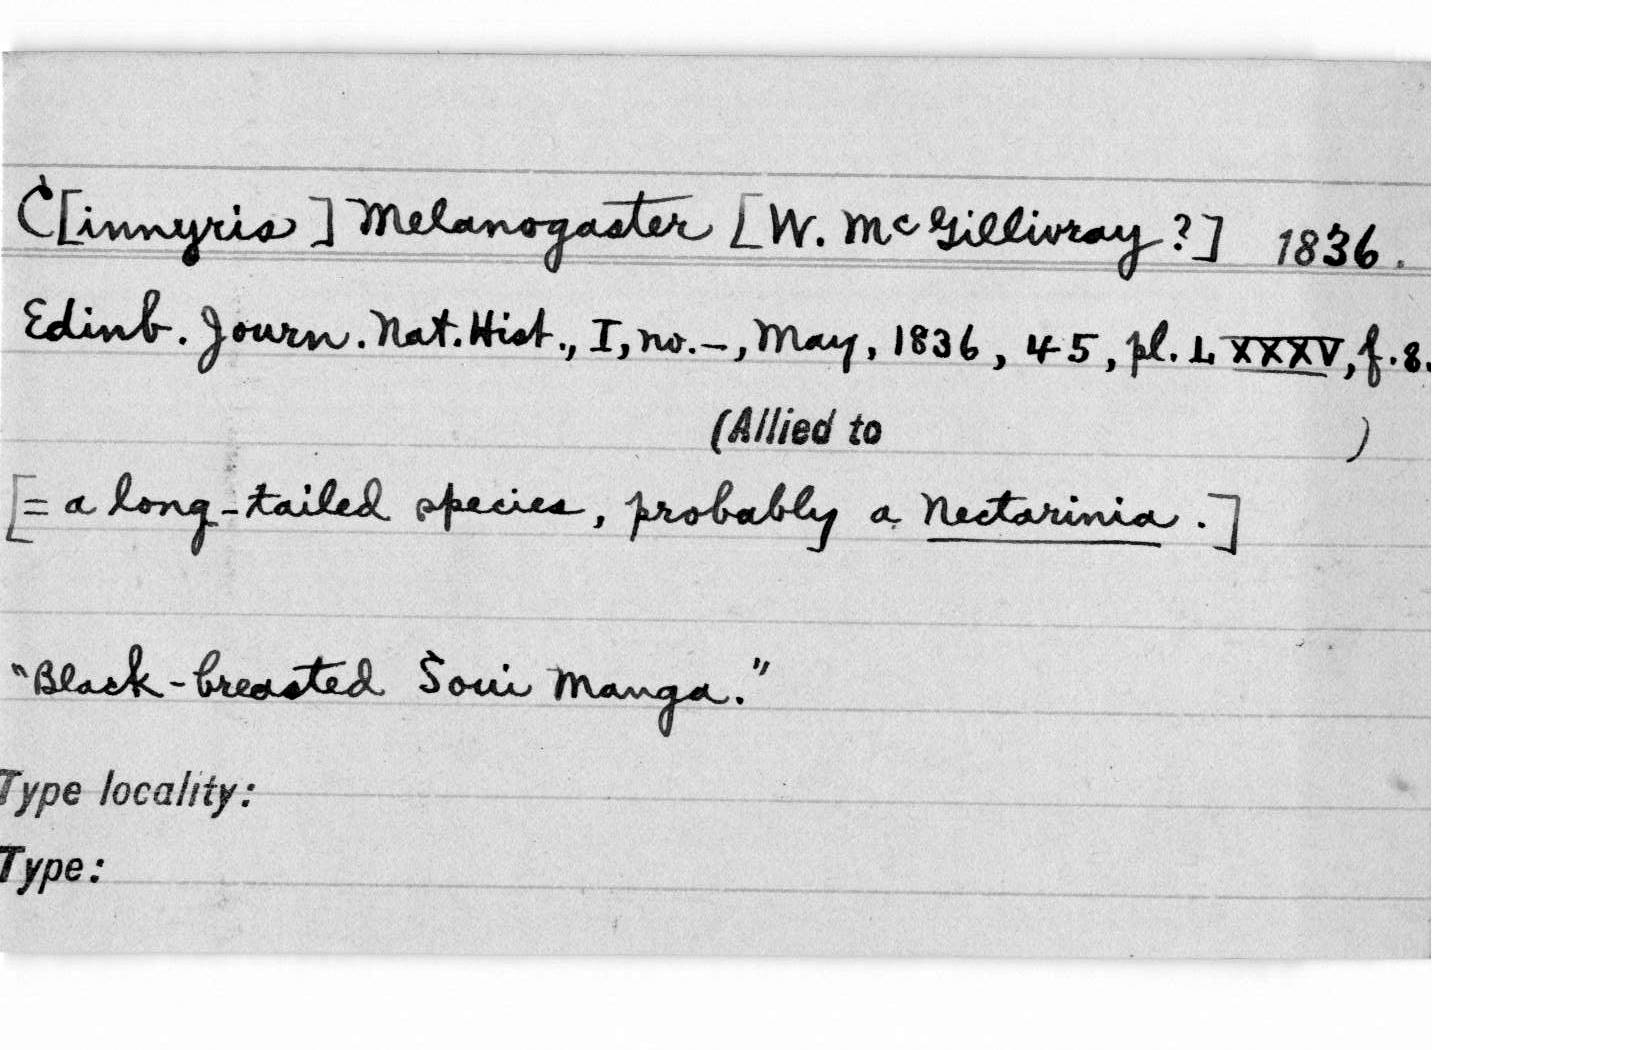 C[innyris] Melanogaster [W. McGillivray?] 1836.
Edinb. Journ. Nat. Hist., I, no. –, May, 1836, 45, pl. LXXXV, f. 8.
(Allied to )
[= a long-tailed species, probably a Nectarinia.]
"Black-breasted Soui Manga."
Type locality:
Type: